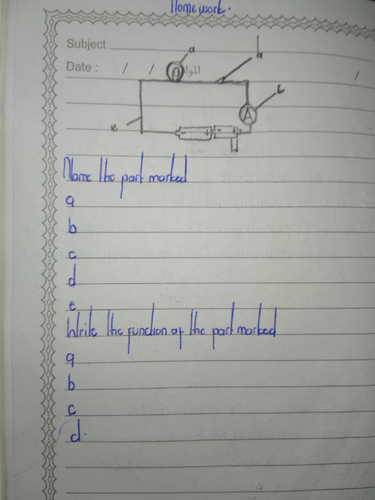 Homework.
Subject
a
Date : / / /
A
e
Name the part marked
a
b
c
d
e
Write the function of the part marked
a
b
c
d.